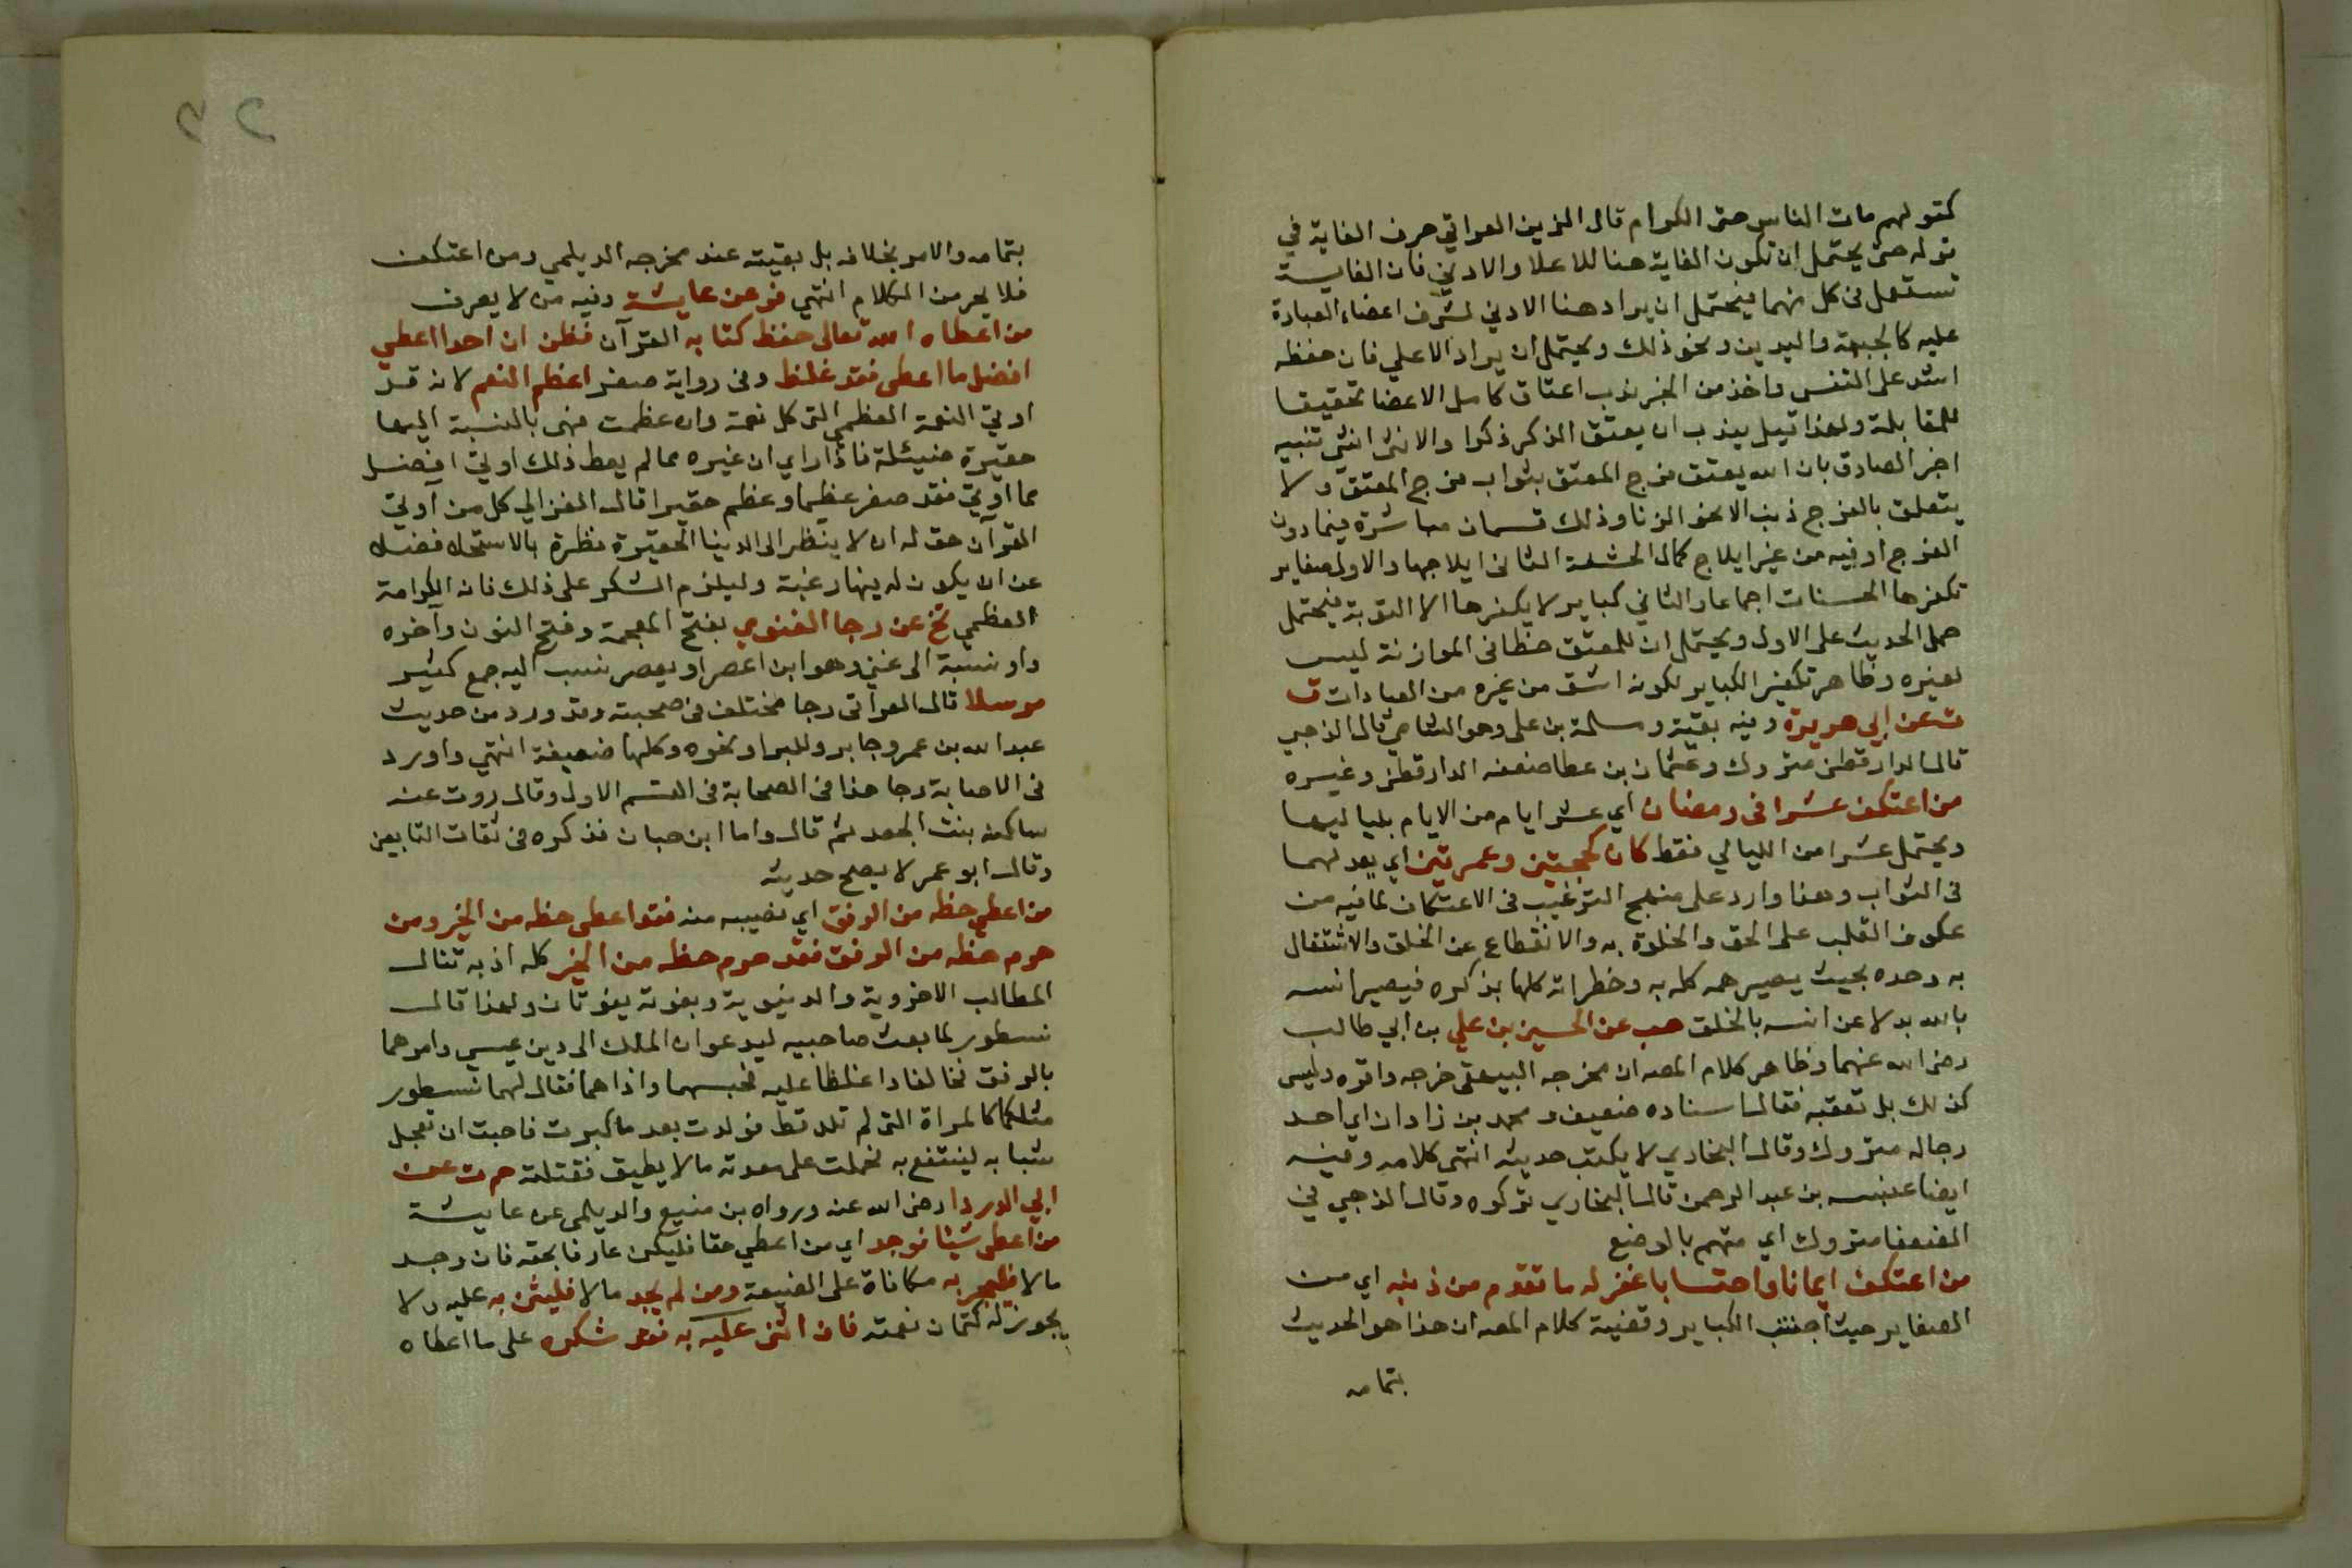 كقولهم مات الناس حتى الكرام قال الزين العراقي حرف الغاية في
قوله حتى يحتمل ان تكون الغاية هنا للاعلا والادني فان الغاية
تستعمل في كل منهما فيحتمل ان يراد هنا الادني لشرف اعضاء العبادة
عليه كالجبهة واليدين ونحو ذلك ويحتمل ان يراد الاعلي فان حفظه
اشد على النفس واخذ من الخبر ندب اعتاق كامل الاعضا تحقيقا
للمقابلة ولهذا قيل يندب ان يعتق الذكر ذكرا والانثى انثى تنبيه
اخبر الصادق بان الله يعتق فرج المعتق بثواب فرج المعتق ولا
يتعلق بالفرج ذنب الا نحو الزنا وذلك قسمان مباشرة فيما دون
الفرج او فيه من غير ايلاج كمال الحشفة الثاني ايلاجها والاول صغاير
تكفرها الحسنات اجماعا والثاني كباير لا يكفرها الا التوبة فيحتمل
حمل الحديث على الاول ويحتمل ان للمعتق حظا في الموازنة ليس
لغيره وظاهر تكفير الكباير لكونه اشق من غيره من العبادات ق
ت عن ابي هريرة وفيه بقية ومسلمة بن على وهو الشامي قال الذهبي
قال الدارقطني متروك وعثمان بن عطا ضعفه الدارقطني وغيره
من اعتكف عشرا في رمضان اي عشر ايام من الايام بلياليها
ويحتمل عشرا من الليالي فقط كان كحجتين وعمرتين اي يعد لهما
في الثواب وهذا وارد على منهج الترغيب في الاعتكاف لما فيه من
عكوف القلب على الحق والخلوة به والانقطاع عن الخلق والاشتغال
به وحده بحيث يصير همه كله به وخطراته كلها بذكره فيصير انسه
بالله بدلا عن انسه بالخلق هب عن الحسين بن علي بن ابي طالب
رضى الله عنهما وظاهر كلام المصه ان مخرجه البيهقي خرجه واقره وليس
كذلك بل تعقبه فقال اسناده ضعيف ومحمد بن زاذان اي احد
رجاله متروك وقال البخاري لا يكتب حديثه انتهى كلامه وفيه
ايضا عنبسه بن عبد الرحمن قال البخاري تركوه وقال الذهبي في
الضعفا متروك اي متهم بالوضع
من اعتكف ايمانا واحتسابا غفر له ما تقدم من ذنبه اي من
الصغاير حيث اجتنب الكباير وقضية كلام المصه ان هذا هو الحديث
بتمامه
٣٢
بتمامه والامر بخلافه بل بقيته عند مخرجه الديلمي ومن اعتكف
فلا يحرمن الكلام انتهي فر عن عايشة وفيه من لا يعرف
من اعطاه الله تعالى حفظ كتابه القرآن فظن ان احدا اعطي
افضل ما اعطى فقد غلط وفى رواية صغر اعظم النعم لانه قد
اوتي النعمة العظمي التى كل نعمة وان عظمت فهى بالنسبة اليها
حقيرة ضئيلة فاذا راي ان غيره ممالم يعط ذلك اوتي افضل
مما اوتي فقد صغر عظيما وعظم حقيرا قال الغزالي كل من آوتي
القرآن حق له ان لا ينظر الى الدنيا الحقيرة نظرة بالاستحلا فضلا
عن ان يكون له فيها رغبة وليلزم الشكر على ذلك فانه الكرامة
العظمي تخ عن رجا الغنوي بفتح المعجمة وفتح النون وآخره
واو نسبة الى غني وهو ابن اعصر او يعصر نسب اليه جمع كثير
مرسلا قال العراقى رجا مختلف في صحبته وقد ورد من حديث
عبد الله بن عمر وجابر والبرا ونحوه وكلها ضعيفة انتهي واورد
فى الاصابة رجا هذا فى الصحابة فى القسم الاول وقال روت عنه
ساكنه بنت الجعد ثم قال واما ابن حبان فذكره فى ثقات التابعين
وقال ابو عمر لا يصح حديثه
من اعطي حظه من الرفق اي نصيبه منه فقد اعطى حظه من الخير ومن
حرم حظه من الرفق فقد حرم حظه من الخير كله اذ به تنال
المطالب الاخروية والدنيوية وبفوته يفوتان ولهذا قال
نسطور لما بعث صاحبيه ليدعوان الملك الى دين عيسي وامرهما
بالرفق فخالفا واغلظا عليه فحبسهما واذاهما فقال لهما نسطور
مثلكما كالمراة التى لم تلد قط فولدت بعد ما كبرت فاحبت ان تعجل
شبابه لينتفع به فحملت على معدته ما لا يطيق فقتلته حم ت عن
ابي الدردا رضى الله عنه ورواه بن منيع والديلمى عن عايشة
من اعطى شيئا فوجد اي من اعطي حقا فليكن عارفا بحقه فان وجد
مالا فليجز به مكافاة على الصنيعة ومن لم يجد مالا فليثن به عليه ولا
يجوز له كتمان نعمته فان اثنى عليه به فقد شكره على ما اعطاه